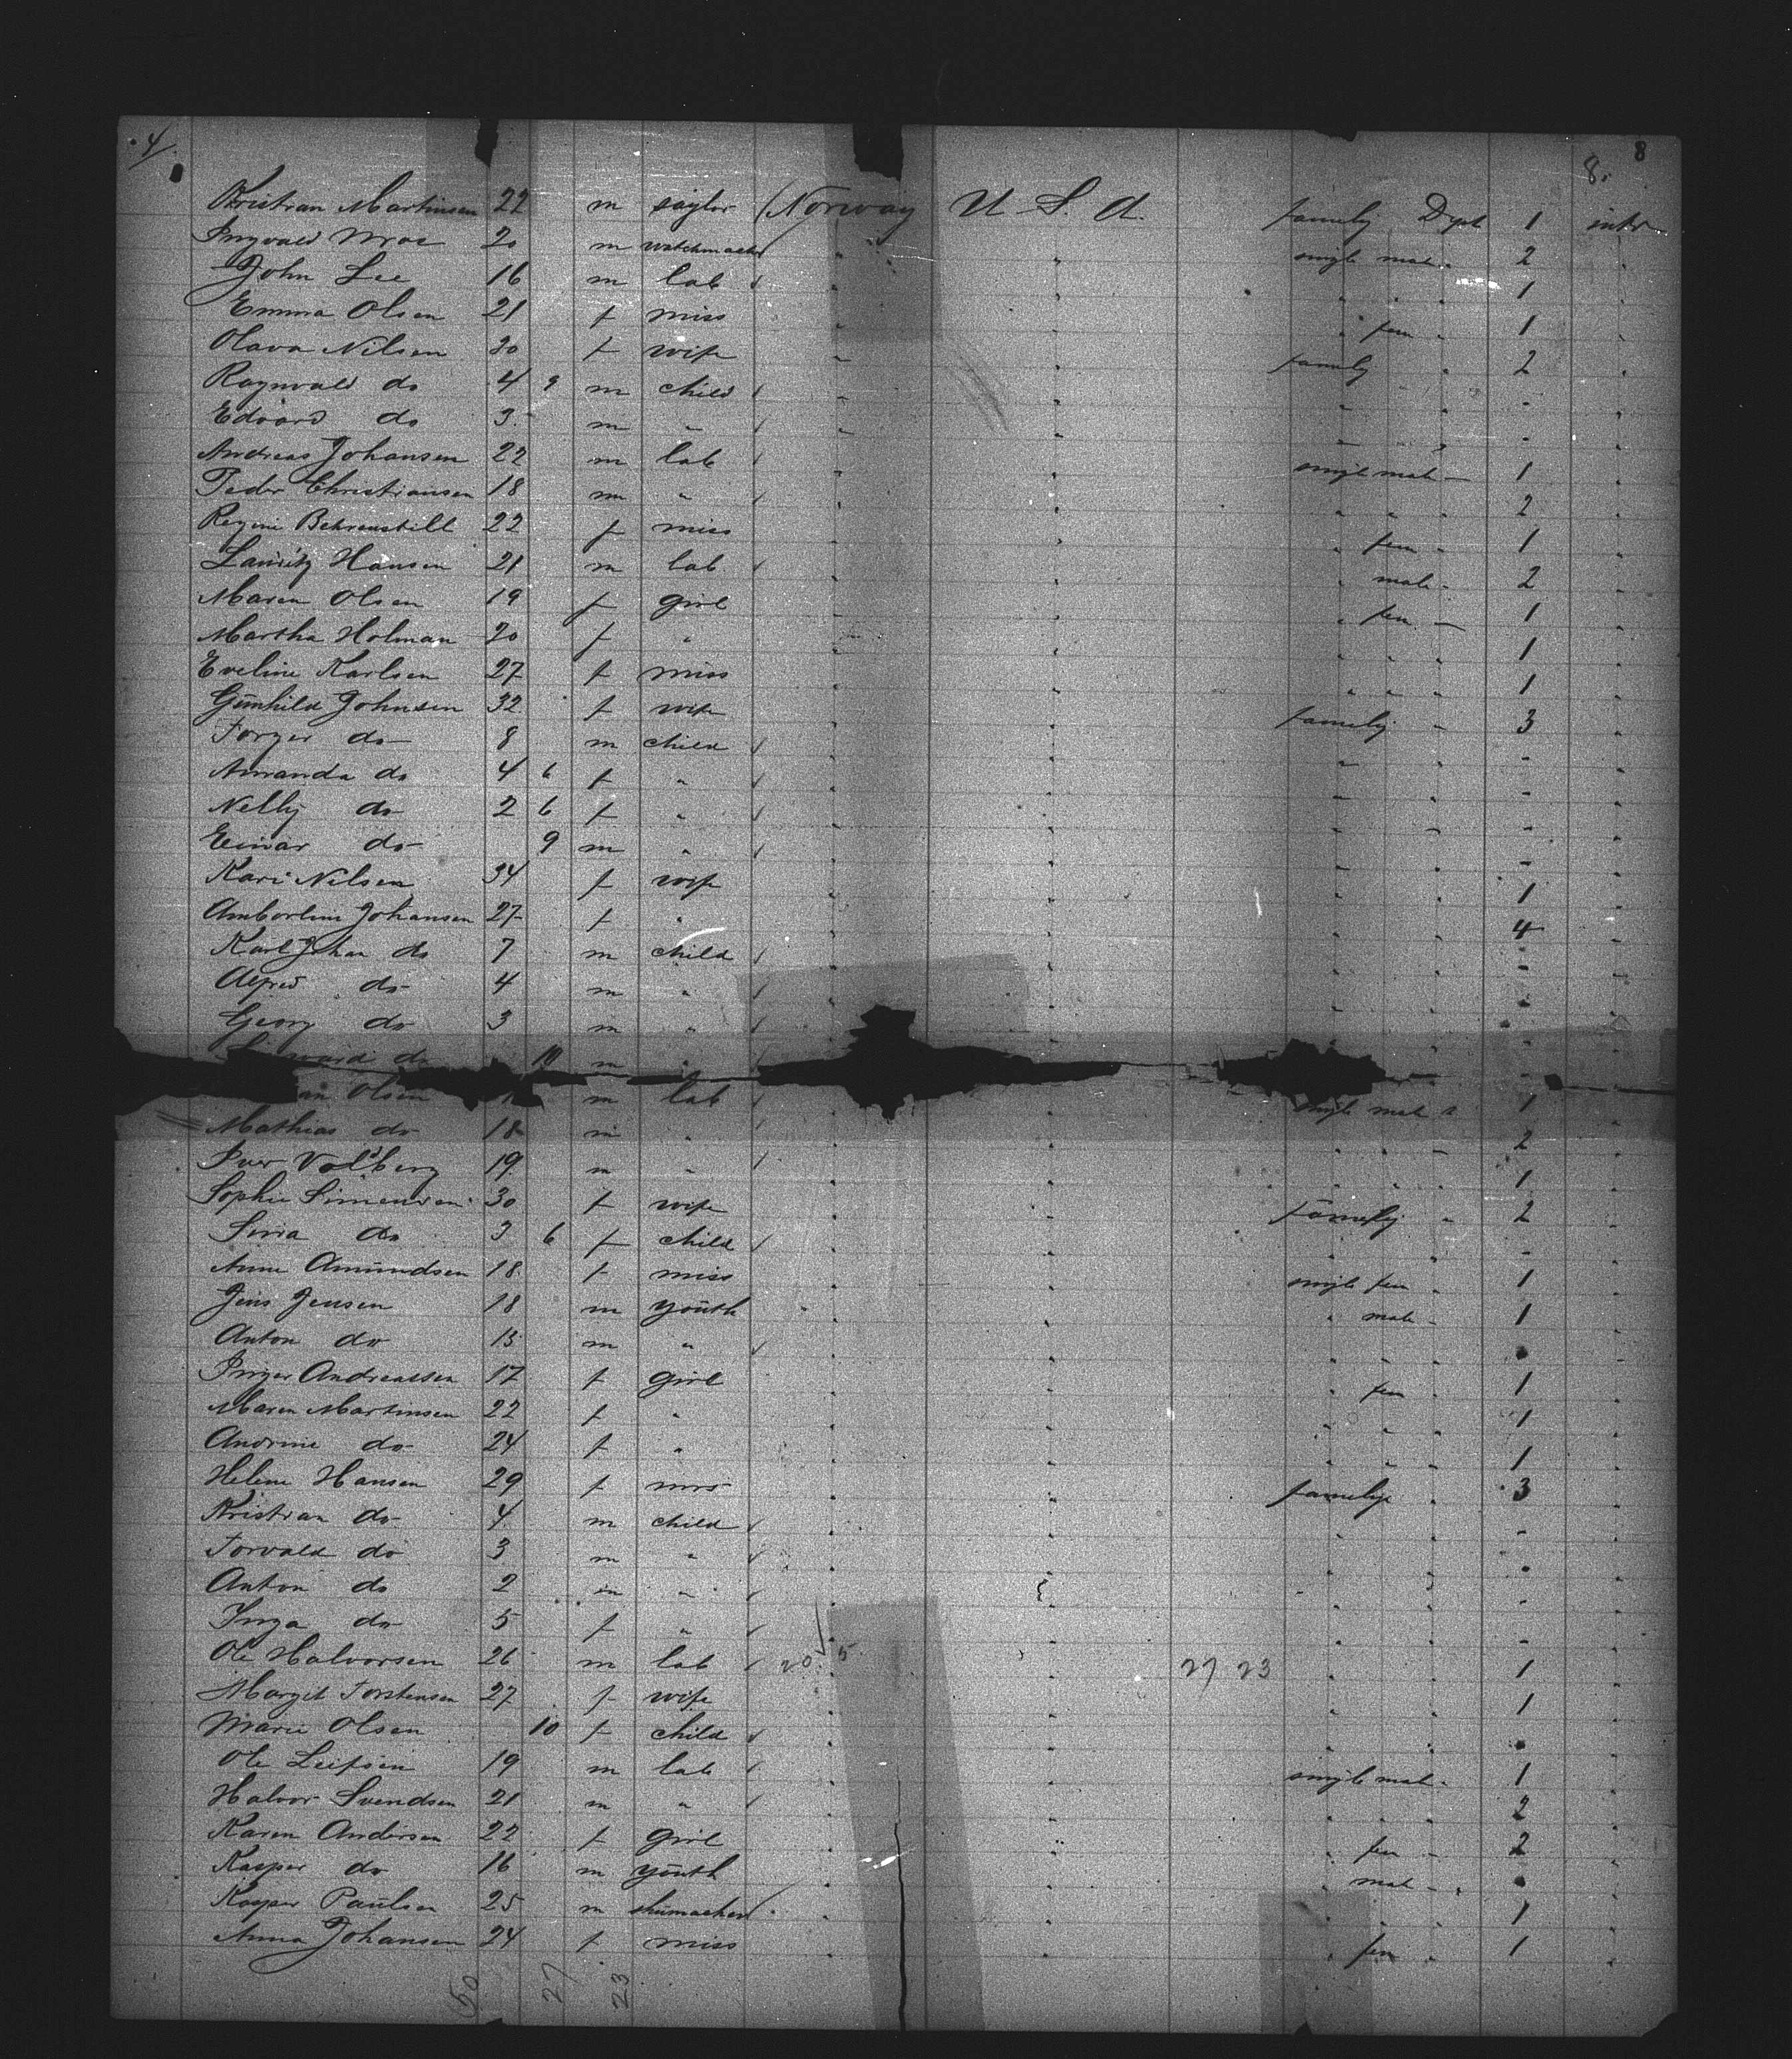 4. 8
8.
Kristian Martinsen 22 m saylor Norway U. S. A. family Dept 1 inter
Ingvald 20 m watchmacker " " single male " 2 "
John Lee 16 m lab " " " " " 1 "
Emma Olsen 21 f miss " " " fem " 1 "
Olava Nilsen 30 f wife " " family " 2 "
Ragnvald do 4 9 m child " " " " - "
Edvard do 3 m " " " " " - "
Andreas Johansen 22 m lab " " single male - 1 "
Peder Christiansen 18 m " " " " " " 2 "
Regine 22 f miss " " " fem " 1 "
Lauritz Hansen 21 m lab " " " male - 2 "
Maren Olsen 19 f girl " " " fem - 1 "
Martha Holman 20 f " " " " " " 1 "
Eveline Karlsen 27 f miss " " " " " 1 "
Gunhild Johnsen 32 f wife " " family - 3 "
Torger do 8 m child " " " " - "
Amanda do 4 6 f " " " " " - "
Nelly do 2 6 f " " " " " - "
Einar do 9 m " " " " " - "
Kari Nilsen 34 f wife " " " " 1 "
Johansen 27 f " " " " " 4 "
Karl Johan do 7 m child " " " " - "
Alfred do 4 m " " " " " - "
Georg do 3 m " " " " " - "
do 10 m " " " " - "
Olsen m lab " single male " 1 "
Mathias do 18 m " " " " " " 2 "
Iver Volberg 19 m " " " " " " 1 "
Sophie Simensen 30 f wife " " family " 2 "
do 3 6 f child " " " " - "
Anne Amundsen 18 f miss " " single fem " 1 "
Jens Jensen 18 m youth " " " male - 1 "
Anton do 15 m " " " " " " - "
Inger Andreassen 17 f girl " " " fem " 1 "
Maren Martinsen 22 f " " " " " " 1 "
Andrine do 24 f " " " " " " 1 "
Helene Hansen 29 f mrs " " family " 3 "
Kristian do 4 m child " " " " - "
Torvald do 3 m " " " " " - "
Anton do 2 m " " " " " - "
Inga do 5 f " " " " " - "
Ole Halvorsen 26 m lab 20 5 " 27 23 " " 1 "
Margit Torstensen 27 f wife " " " " 1 "
Marie Olsen 10 f child " " " " - "
Ole 19 m lab " " single male " 1 "
Halvor Svendsen 21 m " " " " " " 2 "
Karen Andersen 22 f girl " " " fem - 2 "
Kasper do 16 m youth " " " male - - "
Kasper Paulsen 25 m shumacker " " " " " 1 "
Anna Johansen 24 f miss " " " fem " 1 "
50 27 23